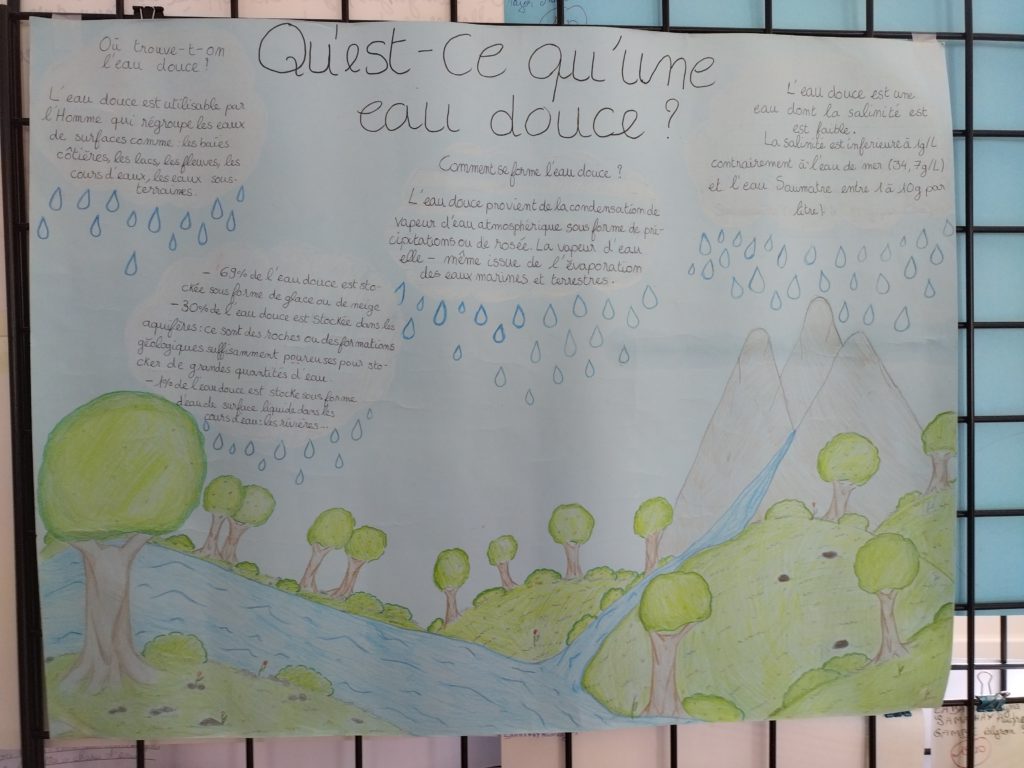 Qu'est-Ce qu'une
eau douce ?
Où trouve-t-on
l'eau douce ?
L'eau douce est utilisable par
l'Homme qui régroupe les eaux
de surfaces comme : les baies
côtières, les lacs, les fleuves, les
cours d'eaux, les eaux sous-
terraines.
- 69% de l'eau douce est sto-
ckée sous forme de glace ou de neige
- 30% de l'eau douce est stockée dans les
aquifères : ce sont des roches ou des formations
géologiques suffisamment poureuses pour sto-
cker de grandes quantités d'eau.
- 1% de l'eau douce est stocke sous forme
d'eau de surface liquide dans les
cours d'eau : les rivières...
Comment se forme l'eau douce ?
L'eau douce provient de la condensation de
vapeur d'eau atmosphérique sous forme de pré-
cipitations ou de rosée. La vapeur d'eau
elle - même issue de l'évaporation
des eaux marines et terrestres.
L'eau douce est une
eau dont la salinité est
est faible.
La salinité est inférieure à 1g/L
contrairement à l'eau de mer (34,7g/L)
et l'eau Saumatre entre 1 à 10g par
litre !